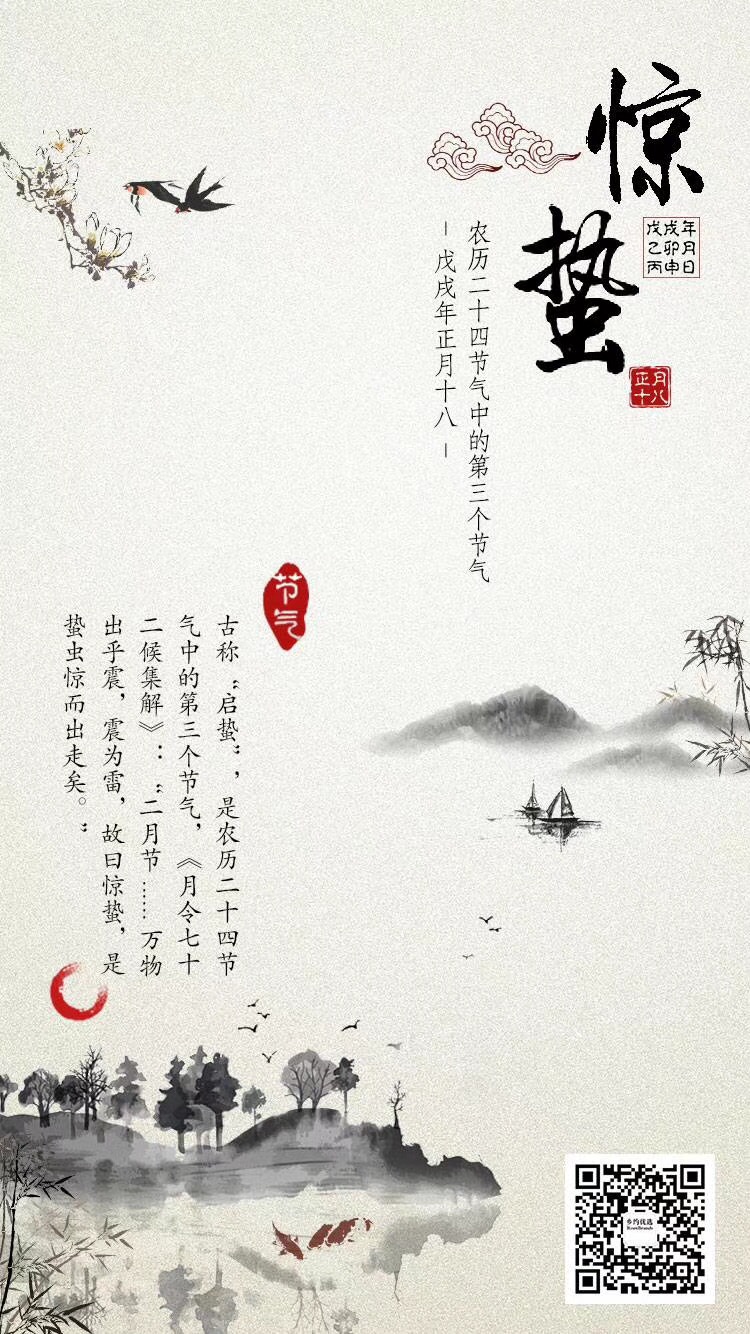 惊
蛰
年月日
戊卯申
戊乙丙
正月
十八
农历二十四节气中的第三个节气
- 戊戌年正月十八 -
节气
古称“启蛰”，是农历二十四节
气中的第三个节气，《月令七十
二候集解》：“二月节……万物
出乎震，震为雷，故曰惊蛰，是
蛰虫惊而出走矣。”
乡约优选